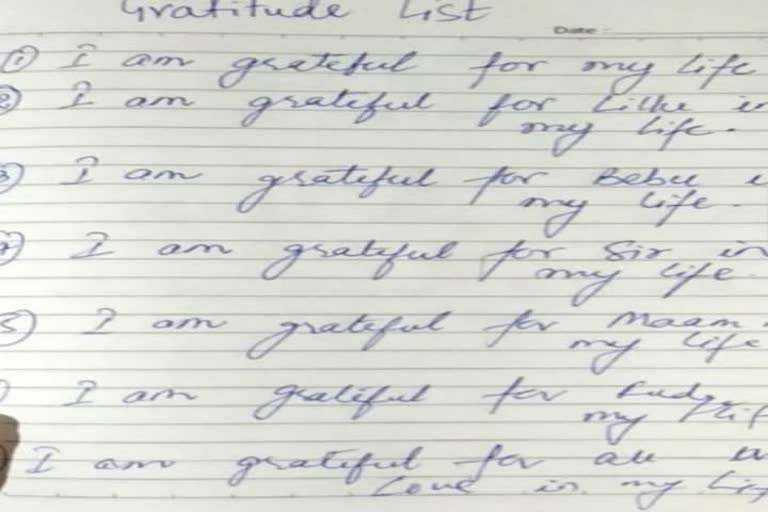 Gratitude List
Date :
① I am grateful for my life
② I am grateful for in
my life.
③ I am grateful for Bebu
my life.
I am grateful for Sir in
my life.
⑤ I am grateful for Maam
my life
I am grateful for
my
I am grateful for all
Love in my